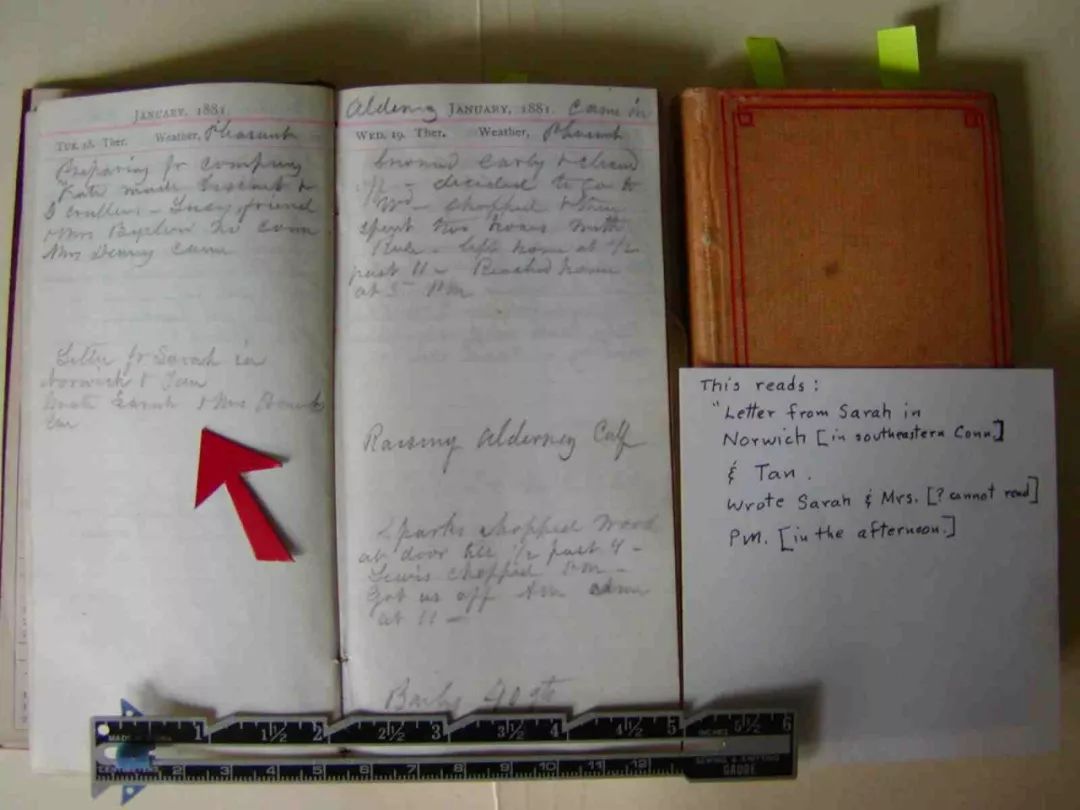 JANUARY, 1881.
TUE. 18. Ther. Weather, Pleasant
Preparing fr company
Kate made biscuit &
crullers - Lucy friend
& Mrs
Mrs Denny came
Letter fr Sarah in
Norwich & Tan
Wrote Sarah & Mrs
PM
Alderney JANUARY, 1881. Came in
WED. 19. Ther. Weather, Pleasant
early &
1/2 - decided to go to
chopped & then
spent two hours with
left home at 1/2
past 11 - Reached home
at 5 PM
Raising Alderney Calf
Sparks chopped wood
at door till 1/2 past 4 -
Lewis chopped PM -
Got us off AM
at 11 -
This reads:
"Letter from Sarah in
Norwich [in southeastern Conn.]
& Tan.
Wrote Sarah & Mrs. [? cannot read]
PM. [in the afternoon.]
1 1½ 2 2½ 3 3½ 4 4½ 5 5½ 6
MADE IN INCHES
CENTIMETERS 2 3 4 5 6 7 8 9 10 11 12 SEWING & KNITTING
GAUGE